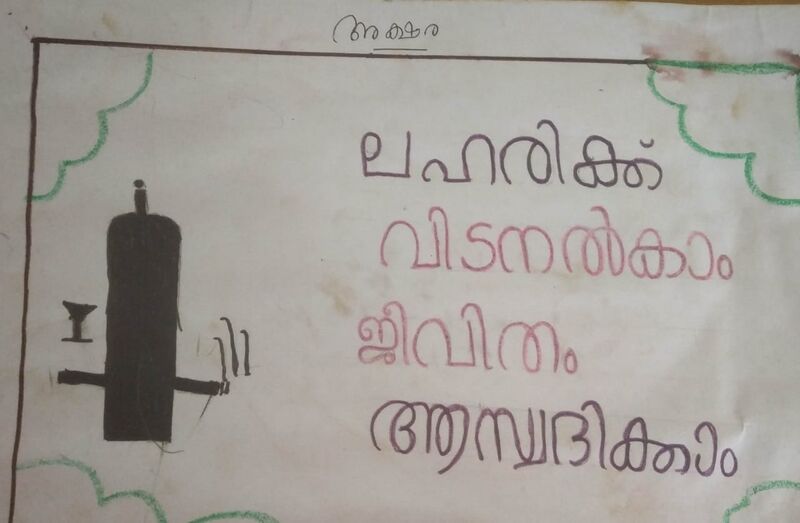 അക്ഷര
ലഹരിക്ക്
വിടനൽകാം
ജീവിതം
ആസ്വദിക്കാം